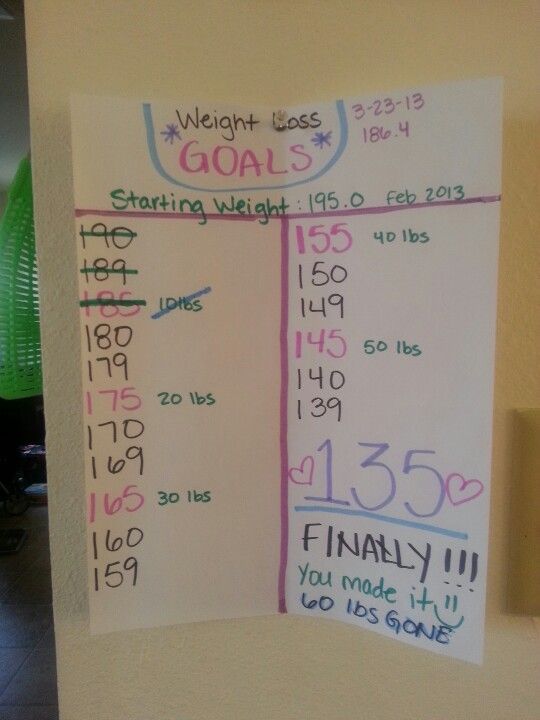 Weight Loss
GOALS
3-23-13
186.4
Starting Weight: 195.0 Feb 2013
190
189
185 10lbs
180
179
175 20 lbs
170
169
165 30 lbs
160
159
155 40 lbs
150
149
145 50 lbs
140
139
135
FINALLY!!!
You made it
60 lbs GONE